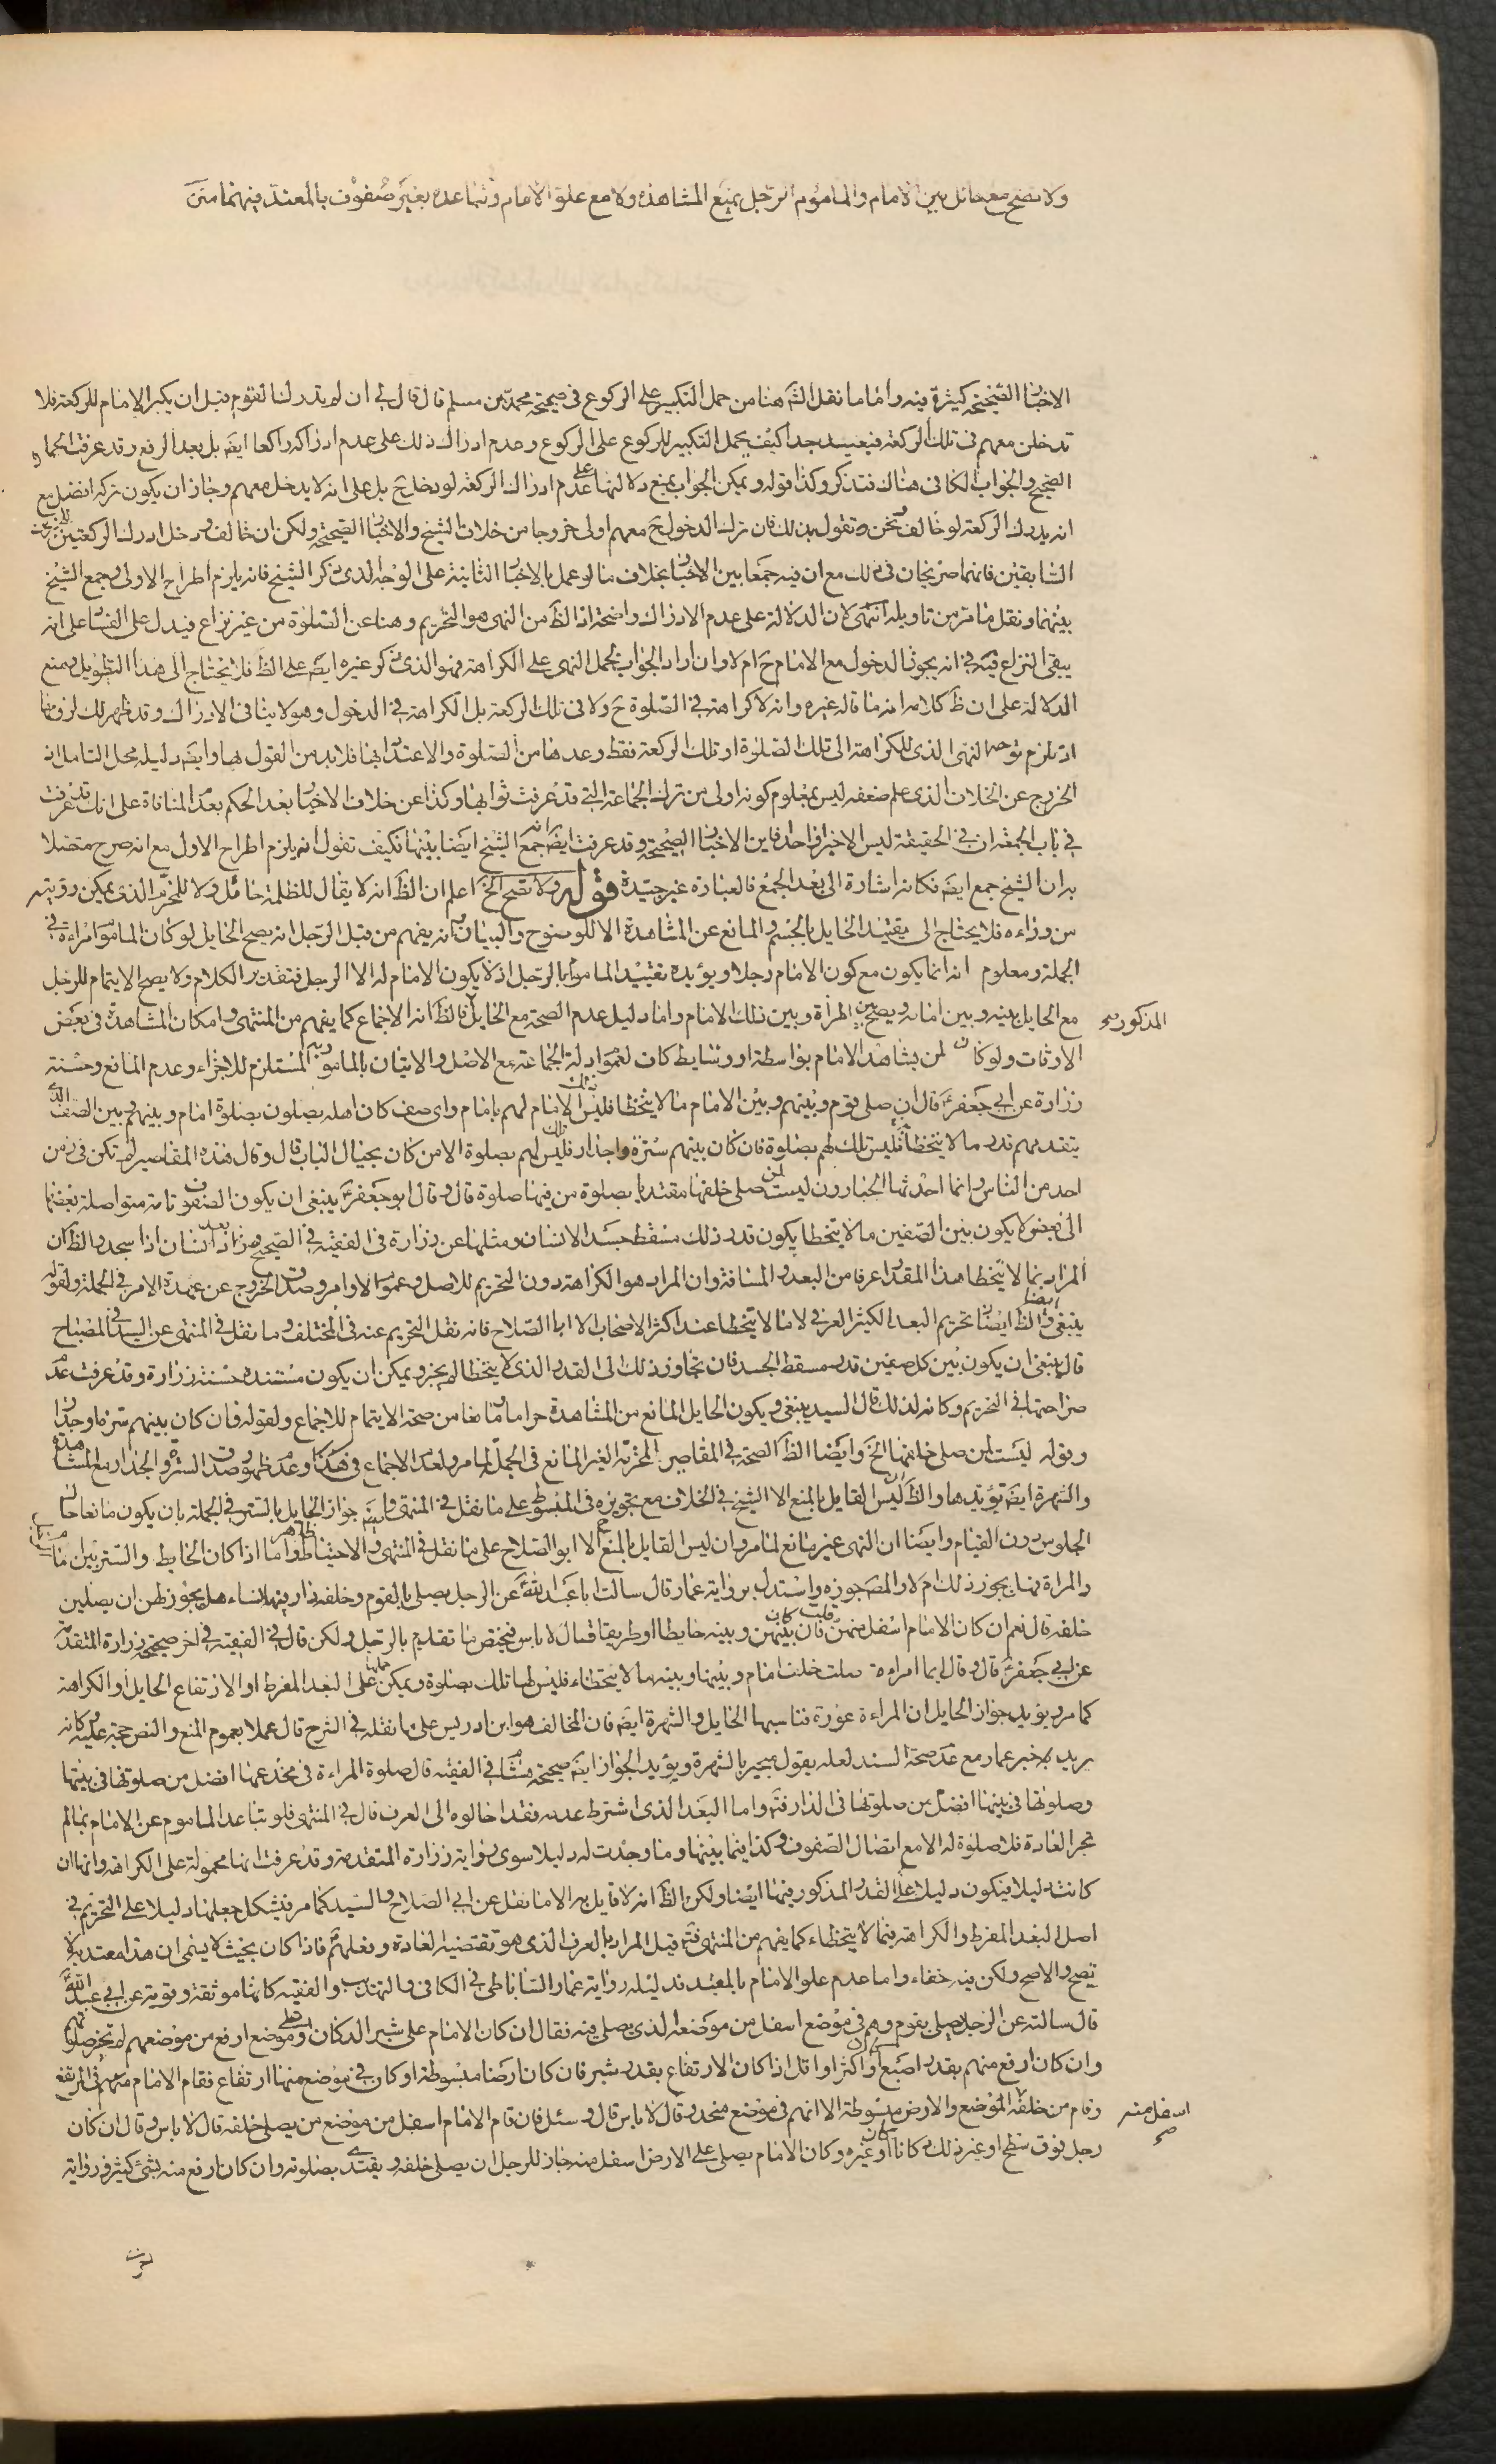 ولا تصح مع حائل بين الامام والماموم الرجل يمنع المشاهده ولا مع علو الامام وتباعده بغير صفوف بالمعتد فيهما متن
الاخبار الصحيحة كثيرة فيه واما ما نقل الش هنا من حمل التكبير على الركوع فى صحيحة محمد بن مسلم قال قال لى ان لم تدرك القوم قبل ان يكبر الامام للركعة فلا
تدخلن معهم فى تلك الركعة فبعيد جدا كيف يحمل التكبير للركوع على الركوع وعدم ادراك ذلك على عدم ادراكه راكعا ايضَ بل بعد الرفع وقد عرفت الجمل و
الصحيح والجواب الكافى هناك فتذكر وكذا قوله ويمكن الجواب بمنع دلالتها على عدم ادراك الركعة لو دخل ح بل على انه لا يدخل معهم وجاز ان يكون تركه افضل مع
انه يدرك الركعة لو خالف ونحن نقول بذلك فان ترك الدخول ح معهم اولى خروجا من خلاف الشيخ والاخبار الصحيحة ولكن ان خالف ودخل ادرك الركعة للخبرين
السابقين فانهما صريحان فى ذلك مع ان فيه جمعا بين الاخبار بخلاف ما لو عمل بالاخبار الثانية على الوجه الذى ذكر الشيخ فانه يلزم اطراح الاولى وجمع الشيخ
بينهما ونقل ما مر من تاويله انتهى لان الدلالة على عدم الادراك واضحة اذ الظ من النهى هو التحريم وهنا عن الصلوة من غير نزاع فيدل على الفساد على انه
يبقى النزاع فيه فى انه يجوز الدخول مع الامام ح ام لا وان اراد الجواب بحمل النهى على الكراهة فهو الذى ذكر غيره ايضَ على الظ فلا يحتاج الى هذا التطويل بمنع
الدلالة على ان ظ كلامه انه ما قاله غيره وانه لا كراهة فى الصلوة ح ولا فى تلك الركعة بل الكراهة فى الدخول وهو لا ينافى الادراك وقد ظهر لك لزومها
اذ يلزم توجه النهى الذى للكراهة الى تلك الصلوة او تلك الركعة فقط وعدها من الصلوة والاعتداد بها فلا بد من القول بها وايضَ دليله محل التامل اذ
الخروج عن الخلاف الذى علم ضعفه ليس بمعلوم كونه اولى من ترك الجماعة التى قد عرفت ثوابها وكذا عن خلاف الاخبار بعد الحكم بعدم المنافاة على انك قد عرفت
فى باب الجمعة ان فى الحقيقة ليس الا خبرا واحدا فاين الاخبار الصحيحة وقد عرفت ايضَ انه جمع الشيخ ايضا بينها فكيف تقول انه يلزم اطراح الاول مع انه صرح متصلا
به ان الشيخ جمع ايضَ فكانه اشارة الى بعد الجمع فالعبارة غير جيدة قوله ولا تصح الخ اعلم ان الظ انه لا يقال للظلمة حائل ولا للمخرم الذى يمكن رؤيته
من وراءه فلا يحتاج الى تقييد الحايل بالجسم والمانع عن المشاهدة الا للوضوح والبيان وانه يفهم من قبل الرجل انه يصح الحايل لو كان الماموم امراءة فى
الجملة ومعلوم انه انما يكون مع كون الامام رجلا ويؤيده تقييد الماموم بالرجل اذ لا يكون الامام له الا الرجل فتقدير الكلام ولا يصح الايتمام للرجل
مع الحايل بينه وبين امامه ويصح بين المرأة وبين ذلك الامام واما دليل عدم الصحة مع الحايل المذكور فالظ انه الاجماع كما يفهم من المنتهى وامكان المشاهدة فى بعض
الاوقات ولو كان لمن يشاهد الامام بواسطة او وسايط كاف لعموم ادلة الجماعة مع الاصل والاتيان بالمامور به المستلزم للاجزاء وعدم المانع وحسنة
زرارة عن ابى جعفر ع قال ان صلى قوم وبينهم وبين الامام ما لا يتخطا فليس ذلك الامام لهم بامام واى صف كان اهله يصلون بصلوة امام وبينهم وبين الصف الذى
يتقدمهم قدر ما لا يتخطا فليس تلك لهم بصلوة فان كان بينهم سترة او جدار فليس تلك لهم بصلوة الا من كان بحيال الباب قال وقال هذه المقاصير لم تكن فى زمن
احد من الناس وانما احدثها الجبارون ليست لمن صلى خلفها مقتديا بصلوة من فيها صلوة قال وقال ابو جعفر ع ينبغى ان يكون الصفوف تامة متواصلة بعضها
الى بعض لا يكون بين الصفين ما لا يتخطا يكون قدر ذلك مسقط جسد الانسان ومثلها عن زرارة فى الفقيه فى الصحيح وزاد بعد انسان اذا سجد والظ ان
المراد بما لا يتخطا هذا المقدار عرفا من البعد والمسافة وان المراد هو الكراهة دون التحريم للاصل وعموم الاوامر وصدق الخروج عن عهدة الامر فى الجملة ولقوله
ينبغى والظ ايضا تحريم البعد الكثير العرفى لا ما لا يتخطا عند اكثر الاصحاب الا ابا الصلاح فانه نقل التحريم عنه فى المختلف وما نقل فى المنتهى عن السيد فى المصباح
قال ينبغى ان يكون بين كل صفين قدر مسقط الجسد فان تجاوز ذلك الى القدر الذى لا يتخطا لم يجز ويمكن ان يكون مستنده حسنة زرارة وقد عرفت عدم
صراحتها فى التحريم وكانه لذلك قال السيد ينبغى ويكون الحايل المانع من المشاهدة حراما ومانعا من صحة الايتمام للاجماع ولقوله فان كان بينهم سترة او جدار
وقوله ليست لمن صلى خلفها الخ وايضا الظ الصحة فى المقاصير المخرمة الغير المانع فى الجملة لما مر ولعدم الاجماع فى هذا وعدم ظهور صدق السترة والجدار مع المشاهدة
والشهرة ايضَ تؤيدها والظ ان ليس القايل بالمنع الا الشيخ فى الخلاف مع تجويزه فى المبسوط على ما نقل فى المنتهى وايضَ جواز الحايل بالستر فى الجملة بان يكون مانعا حال
الجلوس دون القيام وايضا ان النهى غير مانع لما مر وان ليس القايل بالمنع ح الا ابو الصلاح على ما نقل فى المنتهى والاحتياط ظاهر واما اذا كان الحايط والستر بين الامام
والمراة فهل يجوز ذلك ام لا والمصَ جوزه واستدل برواية عمار قال سالت ابا عبد الله ع عن الرجل يصلى بالقوم وخلفه دار فيها نساء هل يجوز لهن ان يصلين
خلفه قال نعم ان كان الامام اسفل منهن قلت فان بينهن وبينه حايطا او طريقا قال لا باس فيختص ما تقدم بالرجل ولكن قال فى الفقيه فى اخر صحيحة زرارة المتقدمة
عن ابى جعفر ع قال وقال ايما امراءة صلت خلف امام وبينها وبينه ما لا يتخطاء فليس لها تلك بصلوة ويمكن حملها على البعد المفرط او الارتفاع الحايل او الكراهة
كما مر ويؤيد جواز الحايل ان المراءة عورة فناسبها الحايل والشهرة ايضَ فان المخالف هو ابن ادريس على ما نقله فى الشرح قال عملا بعموم المنع والنص حجة عليه وكانه
يريد به خبر عمار مع عدم صحة السند لعله يقول يجبر بالشهرة ويؤيد الجواز ايضَ صحيحة هشام فى الفقيه قال صلوة المراءة فى مخدعها افضل من صلوتها فى بيتها
وصلوتها فى بيتها افضل من صلوتها فى الدار فتَم واما البعد الذى اشترط عدمه فقد احالوه الى العرف قال فى المنتهى فلو تباعد الماموم عن الامام بما لم
تجر العادة فلا صلوة له الا مع اتصال الصفوف وكذا فيما بينها وما وجدت له دليلا سوى رواية زرارة المتقدمة وقد عرفت انها محمولة على الكراهة وانها ان
كانت دليلا فيكون دليلا على القدر المذكور فيها ايضا ولكن الظ انه لا قايل به الا ما نقل عن ابى الصلاح والسيد كما مر فيشكل جعلها دليلا على التحريم فى
اصل البعد المفرط والكراهة فيما لا يتخطاء كما يفهم من المنتهى فتَم قيل المراد بالعرف الذى هو تقتضيه العادة وفعلهم فاذا كان بحيث لا يسمى ان هذا مقتد به لا
تصح والا صح ولكن فيه خفاء واما عدم علو الامام بالمعتد فدليله رواية عمار الساباطى فى الكافى والتهذيب والفقيه كانها موثقة وقوية عن ابى عبد الله ع
قال سالته عن الرجل يصلى بقوم وهم فى موضع اسفل من موضعه الذى يصلى فيه فقال ان كان الامام على شبه الدكان او على موضع ارفع من موضعهم لم تجز صلوتهم
وان كان ارفع منهم بقدر اصبع او اكثر او اقل اذا كان الارتفاع بقدر شبر فان كان ارضا مبسوطة او كان فى موضع منها ارتفاع فقام الامام فى المرتفع
وقام من خلفه اسفل منه الموضع والارض مبسوطة الا انهم فى موضع منحدر قال لا باس قال وسئل فان قام الامام اسفل من موضع من يصلى خلفه قال لا باس وقال ان كان
رجل فوق سطح او غير ذلك دكانا كان او غيره وكان الامام يصلى على الارض اسفل منه جاز للرجل ان يصلى خلفه ويقتدى بصلوته وان كان ارفع منه بشئ كثير ورواية